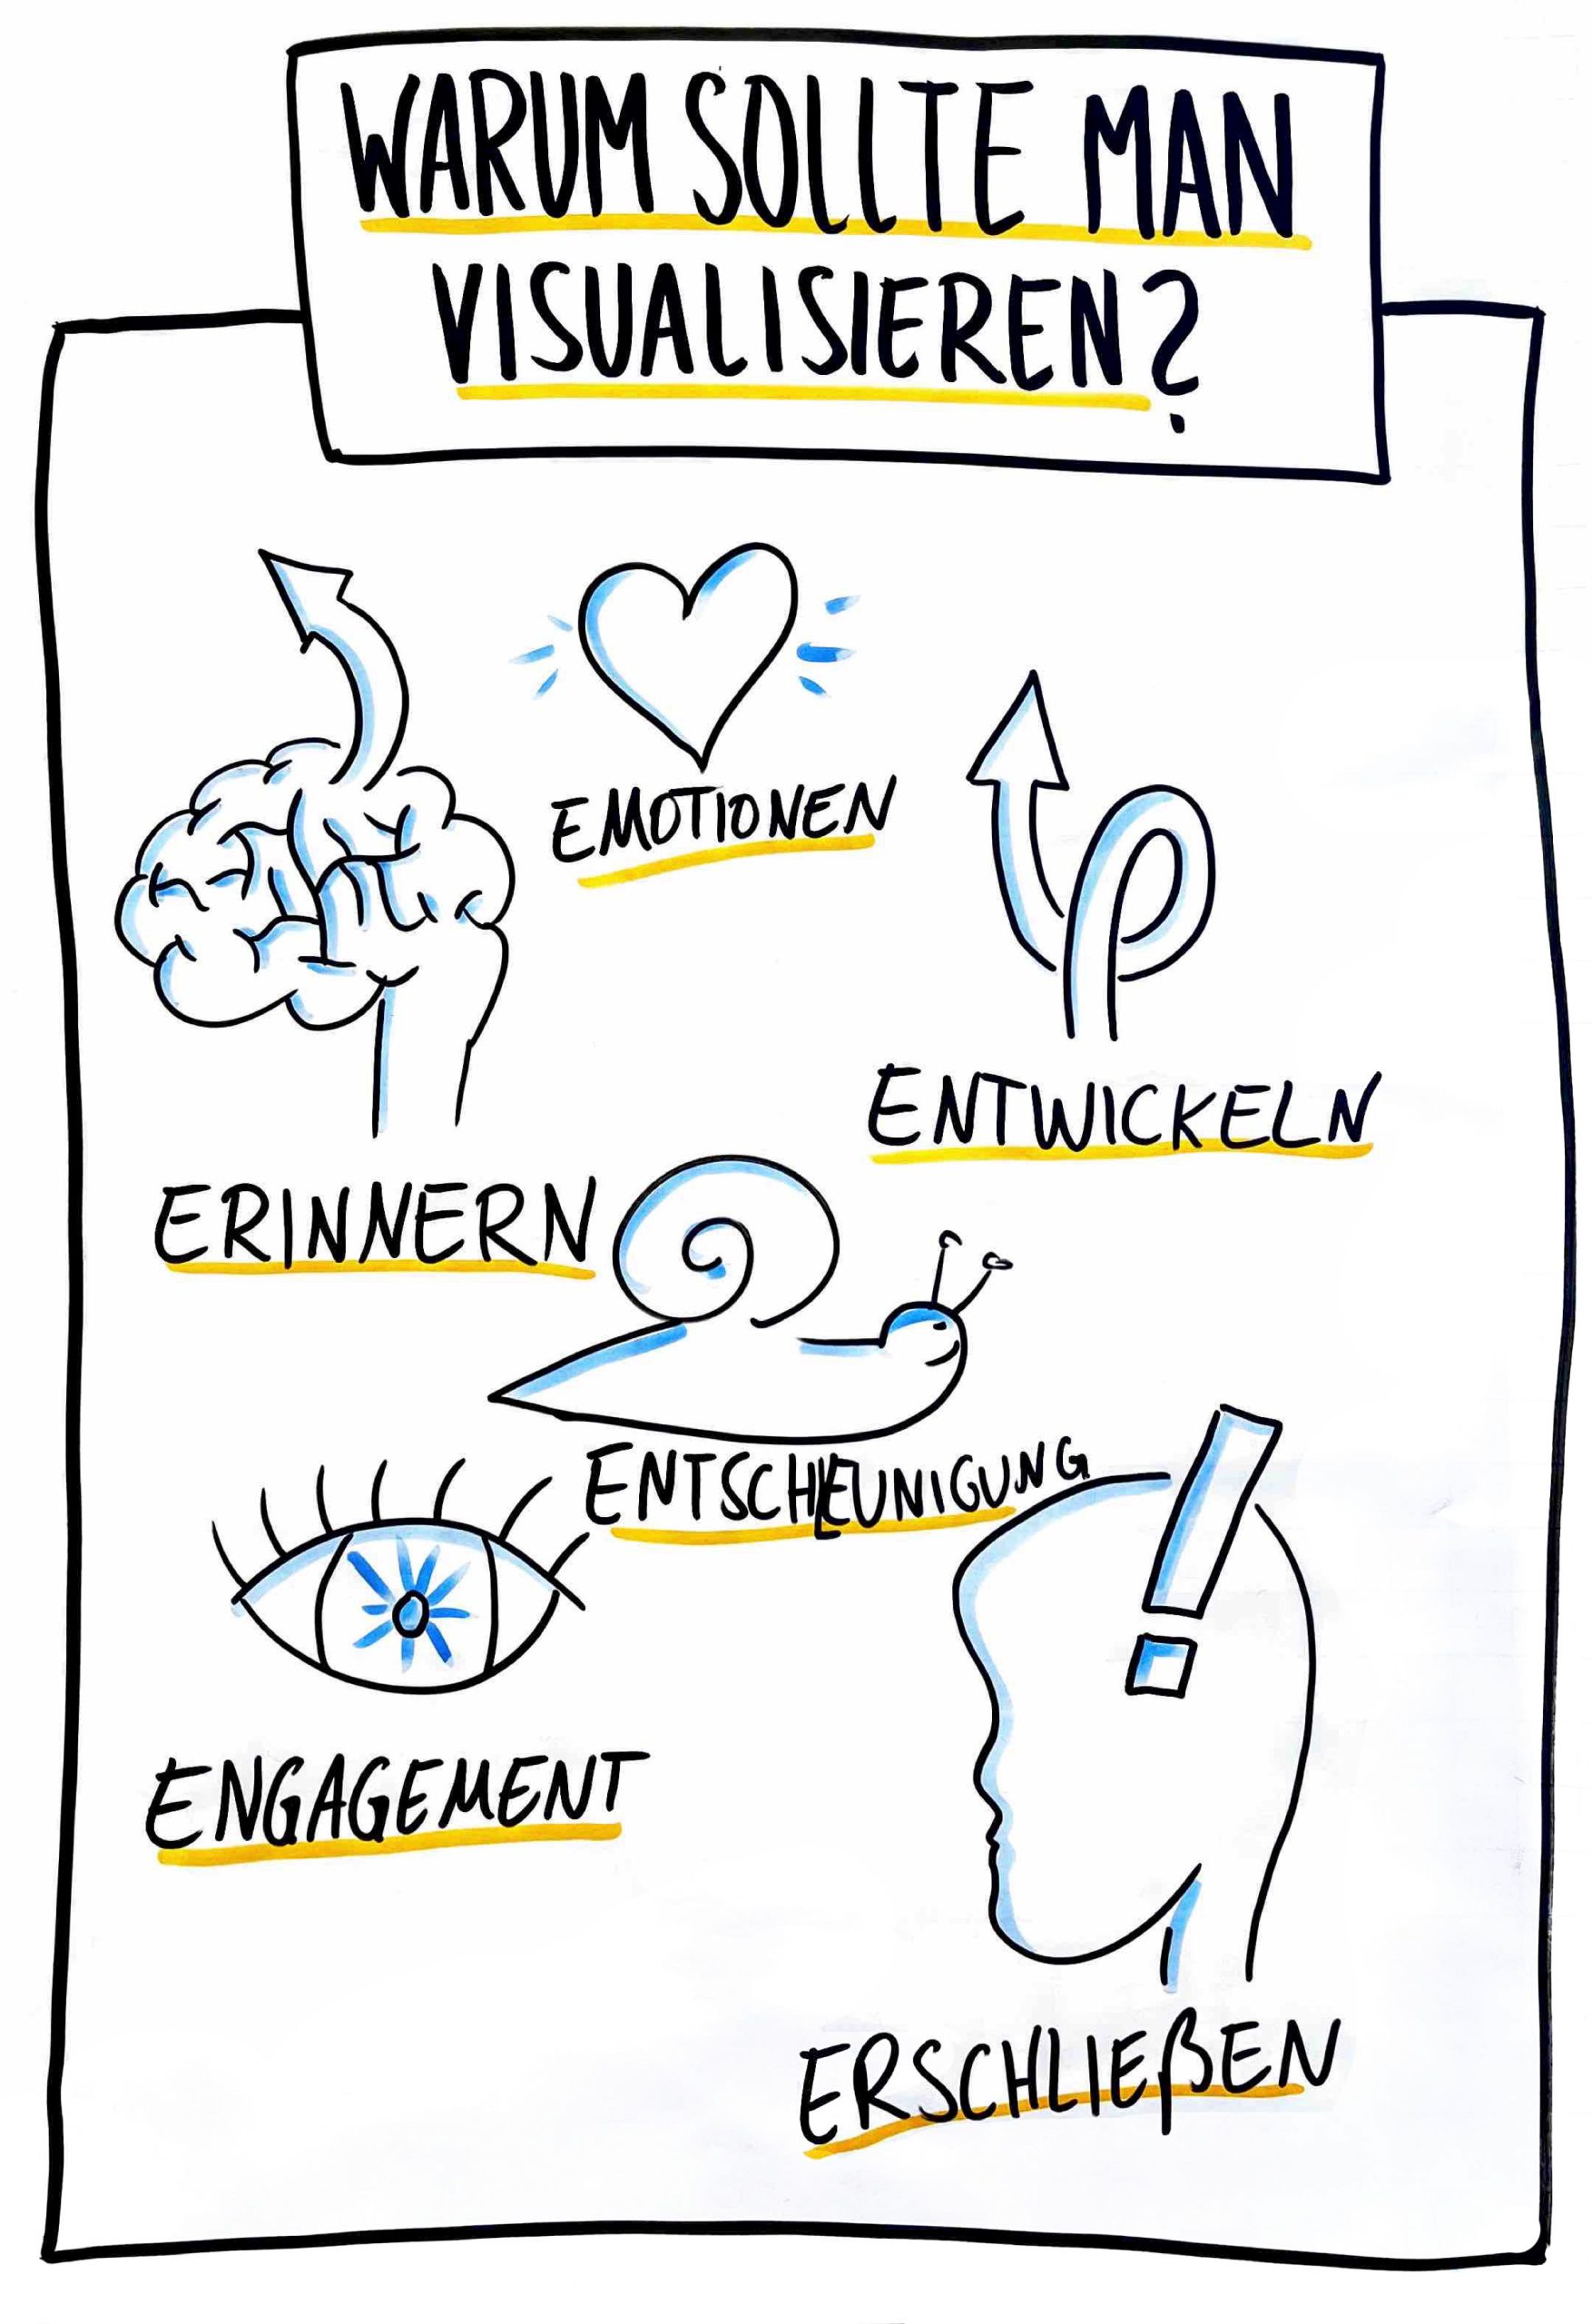 WARUM SOLLTE MAN
VISUALISIEREN?
EMOTIONEN
ENTWICKELN
ERINNERN
ENTSCHLEUNIGUNG
ENGAGEMENT
ERSCHLIEßEN